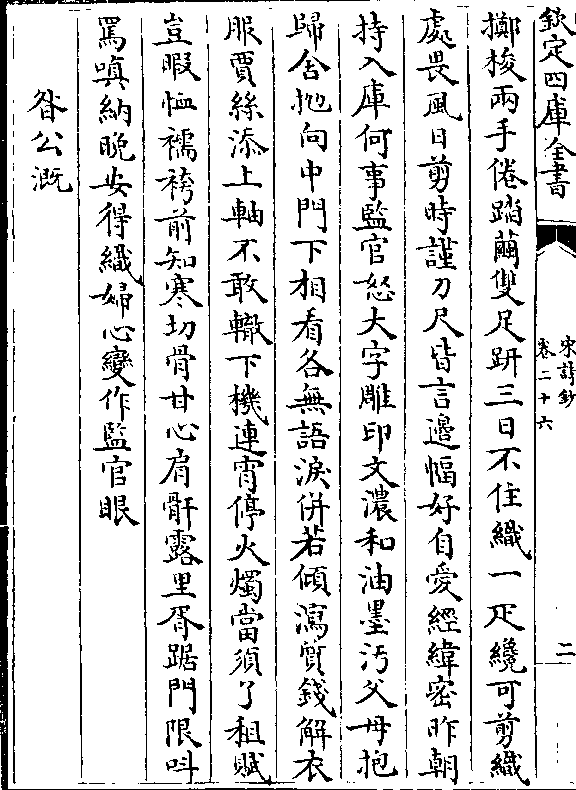 欽定四庫全書
宋詩鈔
卷二十六
二
擲梭兩手倦踏繭雙足趼三日不住織一疋纔可剪織
處畏風日剪時謹刀尺皆言邊幅好自愛經緯密昨朝
持入庫何事監官怒大字雕印文濃和油墨汚父母抱
歸舍抛向中門下相看各無語淚併若傾瀉質錢解衣
服買絲添上軸不敢輟下機連宵停火燭當須了租賦
豈暇恤襦袴前知寒切骨甘心肩骭露里胥踞門限呌
罵嗔納晚安得織婦心變作監官眼
昝公溉